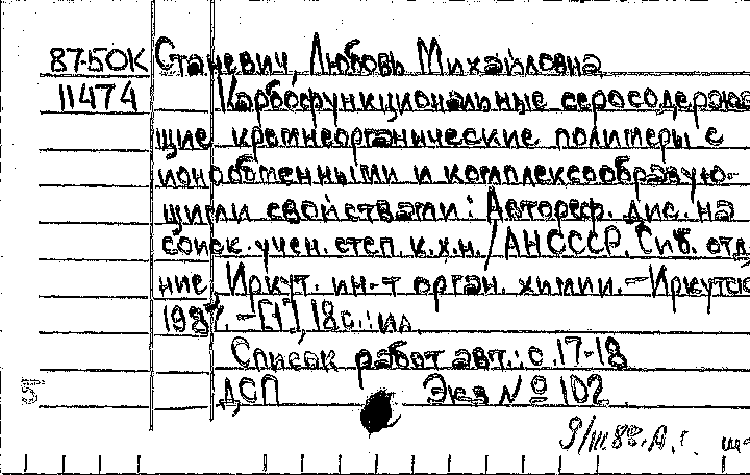 87-50К Станевич, Любовь Михайловна
11474 Карбофункциональные серосодержа
щие кремнеорганические полимеры с
ионообменными и комплексообразую-
щими свойствами: Автореф. дис. на
соиск. учен. степ. к.х.н. / АН СССР. Сиб. отд-
ние. Иркут. ин-т орган. химии. – Иркутск
1987. – [1], 18 с.: ил.
Список работ авт.: с. 17-18
ДСП Экз № 102
9/III 88. А. г.